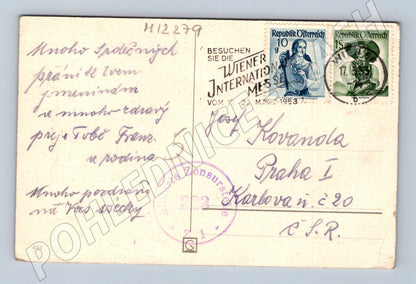 M12279
Mnoho společných
přání k Tvem
jmeninám
a mnoho zdraví
preje Tobě Franz
a rodina
Mnoho pozdravů
na Vás všecky
BESUCHEN
SIE DIE
WIENER
INTERNATIONALE
MESSE
VOM 8.-15. MÄRZ 1953
Republik Österreich
10
g
Republik Österreich
1S
WIEN
17.
53
b
Josef Kovanda
Praha I
Karlova ul. č 20
Č.S.R.
Zensurstelle
223
- z 1. -
POHLEDNICE